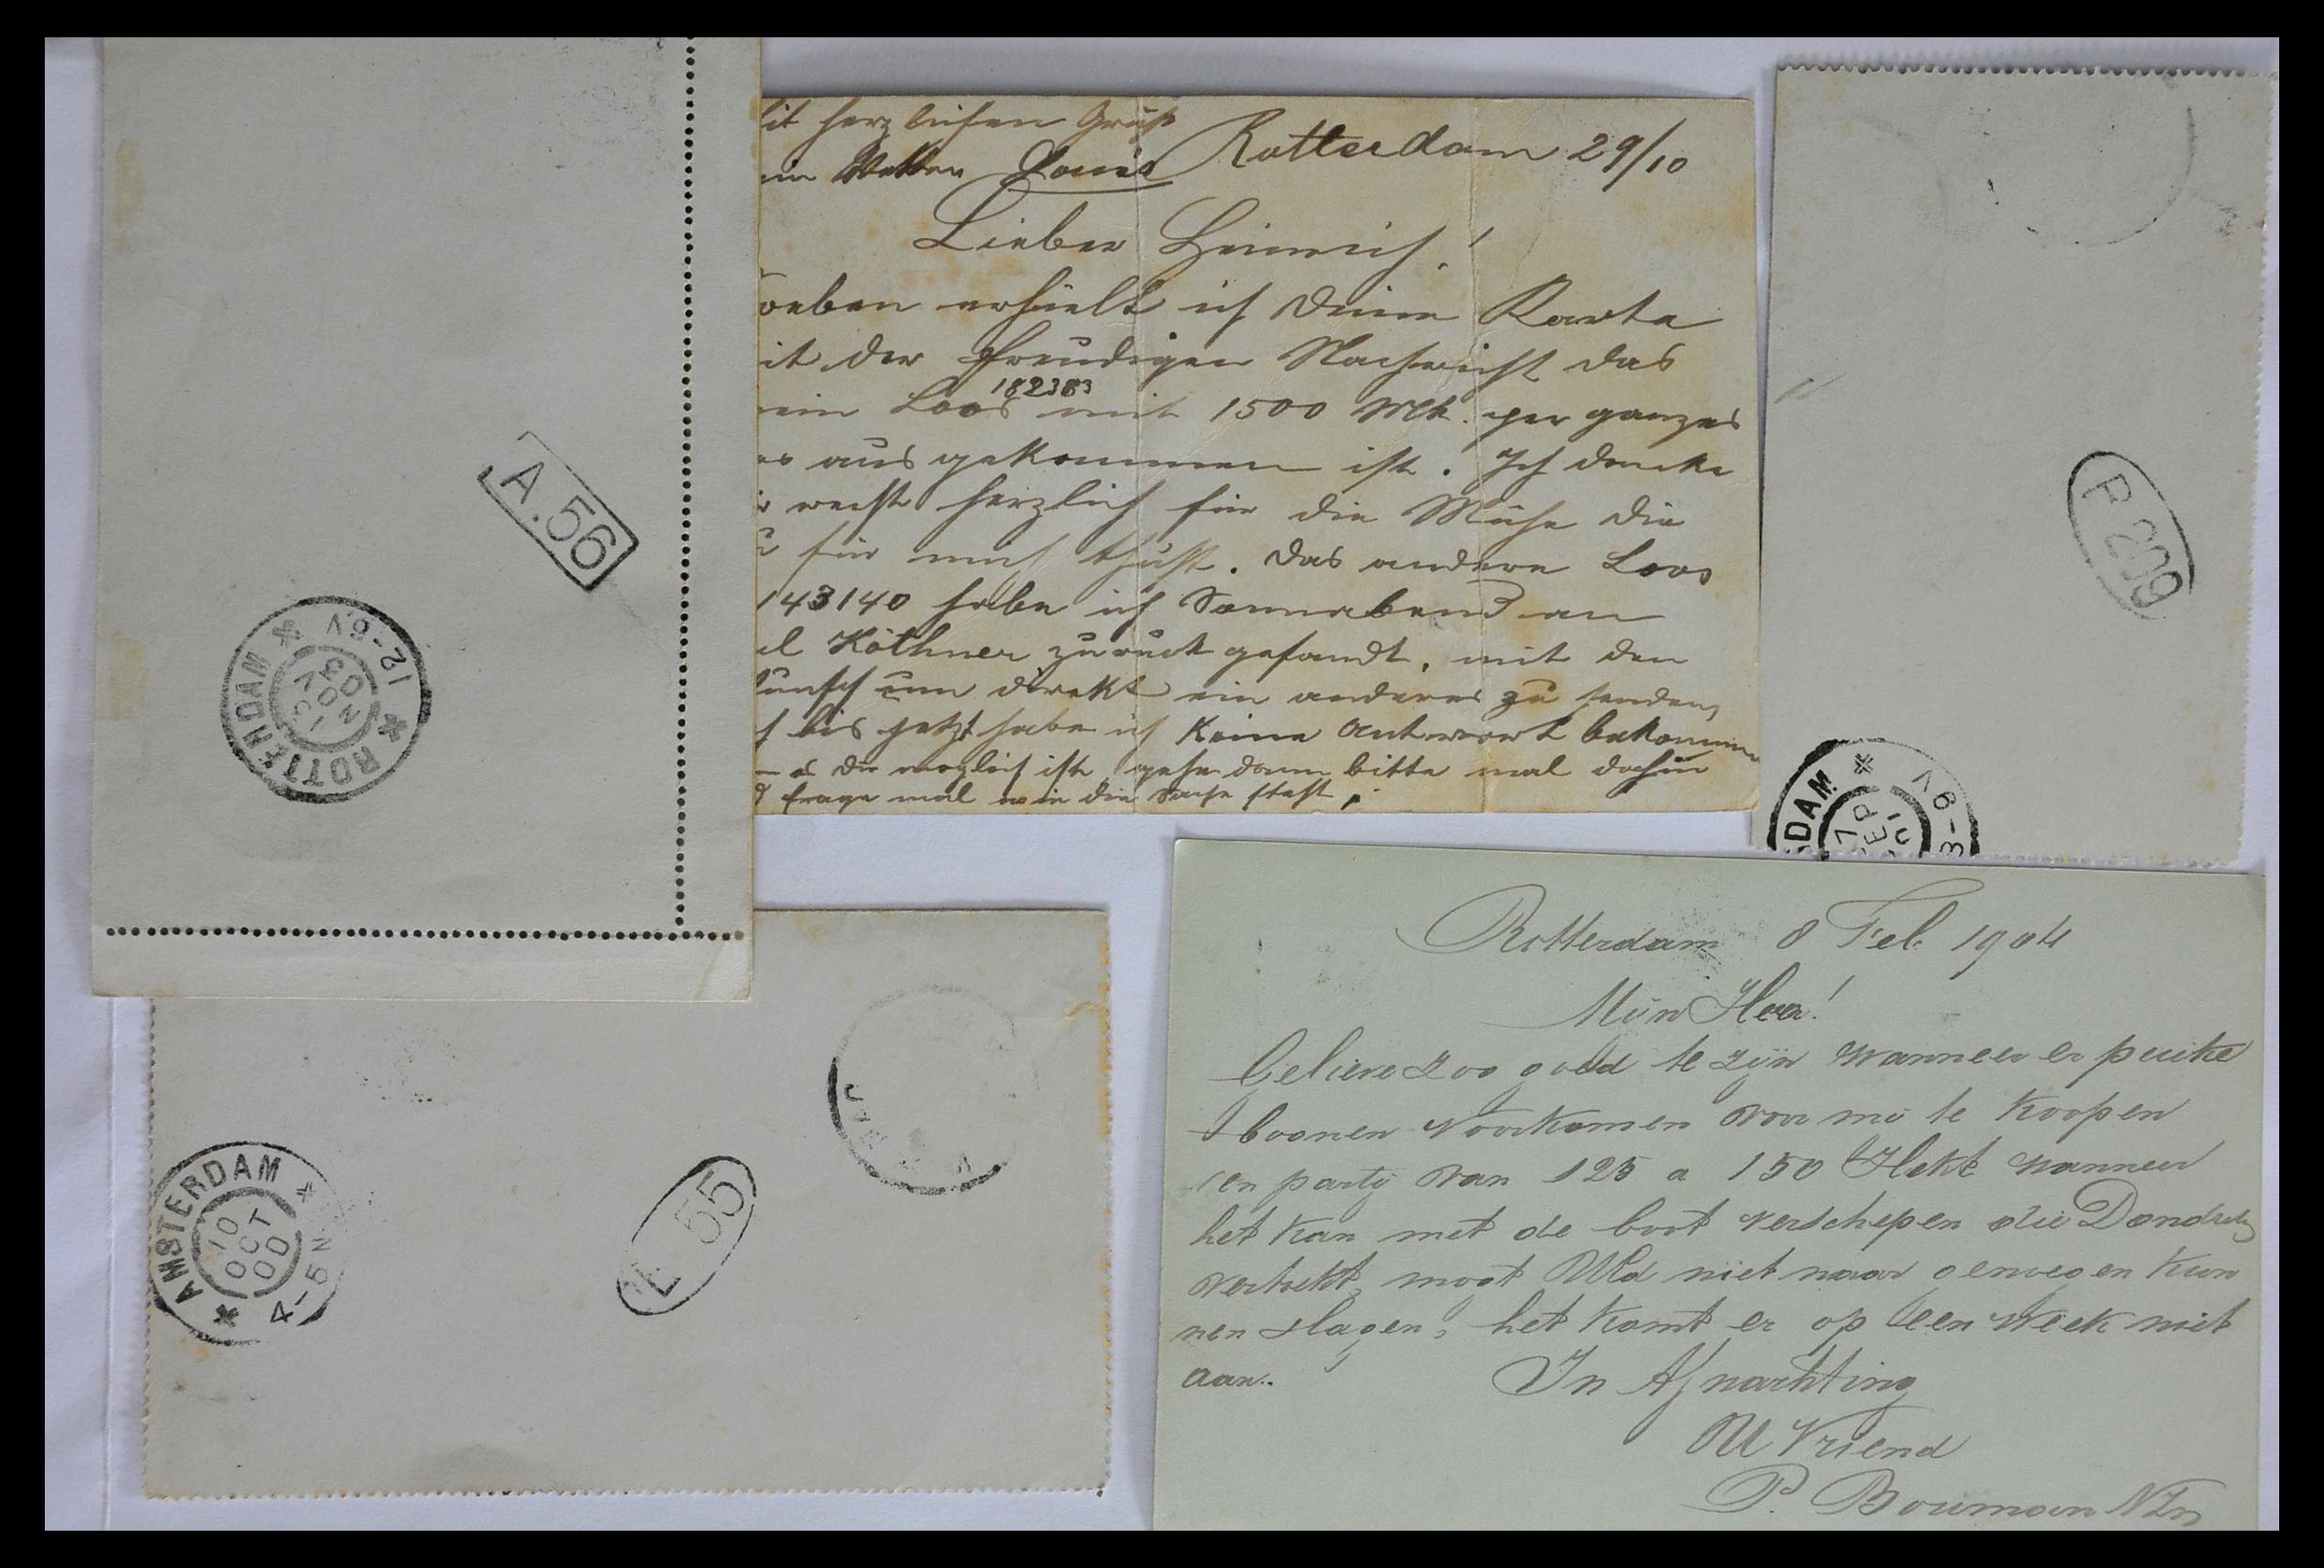 A.56
ROTTERDAM
12-6V
NOV
03
herzlichen Gruß
Vetter Louis
Rotterdam 29/10
Lieber Heinrich!
soeben erhielt ich Deine Karte
mit der freudigen Nachricht das
mein Loos 182383 mit 1500 Mk. per ganzes
aus gekommen ist. Ich dancke
recht herzlich für die Mühe die
für mich thust. das andere Loos
143140 habe ich Sonnabend an
Köthner zurück gesandt, mit den
Wunsch um direkt ein anderes zu senden,
bis jetzt habe ich Keine Antwort bekommen
es Dir möglich ist, gehe dann bitte mal dahin
frage mal wie die Sache steht.
P 209
DAM
SEP
3-9V
AMSTERDAM
10
OCT
00
4-5N
55
Rotterdam 8 Feb 1904
Mijn Heer!
Gelieve zoo goed te zijn wanneer er puike
boonen voorkomen voor mij te koopen
een partij van 125 a 150 Hekt wanneer
het kan met de boot verschepen die Donderdag
vertrekt, mogt UEd niet naar genoegen kun
nen slagen, het komt er op een week niet
aan.
In Afwachting
UE Vriend
P. Bouman NZn